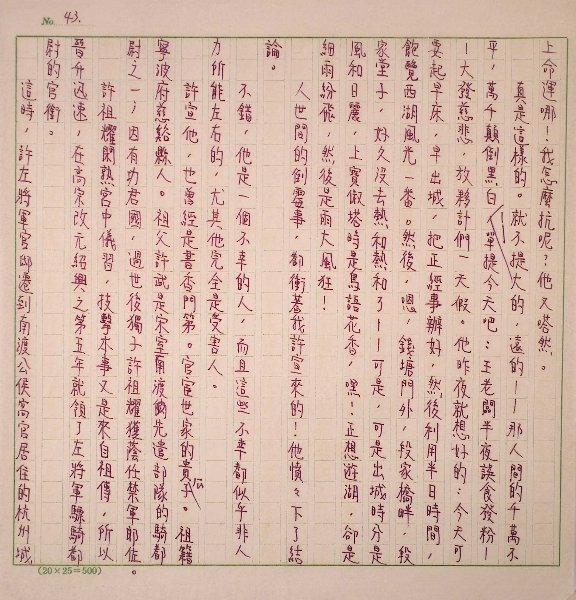 No. 43.
上命運哪！我怎麼抗呢？他又嗒然。
真是這樣的。就不提大的，遠的——那人間的千萬不
平，萬千顛倒黑白，單提今天吧：王老闆半夜誤食發粉—
—大發慈悲，放夥計們一天假。他昨夜就想好的：今天可
要起早床，早出城，把正經事辦好，然後利用半日時間，
飽覽西湖風光一番。然後，嗯，錢塘門外，段家橋畔，段
家堂子，好久沒去熱和熱和了——可是，可是出城時分是
風和日麗，上寶俶塔時是鳥語花香，嘿！正想遊湖，卻是
細雨紛飛，然後是雨大風狂！
人世間的倒霉事，都衝著我許宣來的！他憤憤下了結
論。
不錯，他是一個不幸的人，而且這些不幸都似乎非人
力所能左右的，尤其他完全是受害人。
許宣他，也曾經是書香門第。官宦世家的貴公子。祖籍
寧波府慈谿縣人。祖父許武是宋室南渡先遣部隊的騎都
尉之一；因有功君國，過世後獨子許祖耀獲蔭任禁軍郎佐。
許祖耀閑熟宮中儀習，技擊本事又是來自祖傳，所以
晉升迅速，在高宗改元紹興之第五年就領了左將軍驃騎都
尉的官銜。
這時，許左將軍官邸遷到南渡公侯高官居住的杭州城
(20×25=500)